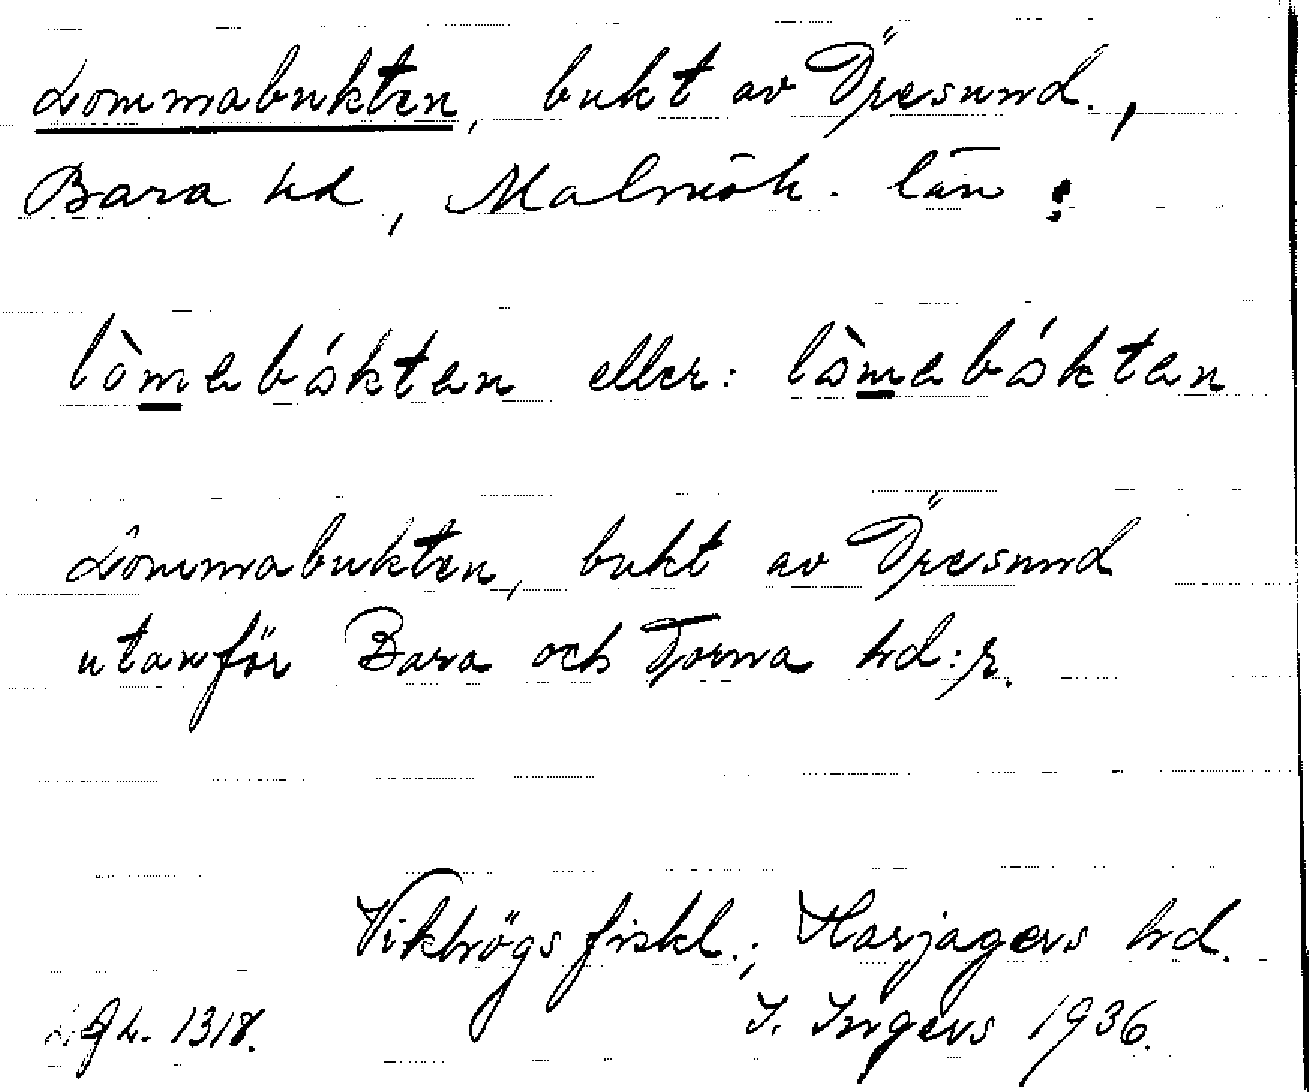 Lommabukten, bukt av Öresund.,
Bara hd, Malmöh. län:
lòmabåktan eller: låmabåktan
Lommabukten, bukt av Öresund
utanför Bara och Torna hd:r.
Vikhögs fiskl., Harjagers hd.
1318. I. Ingers 1936.